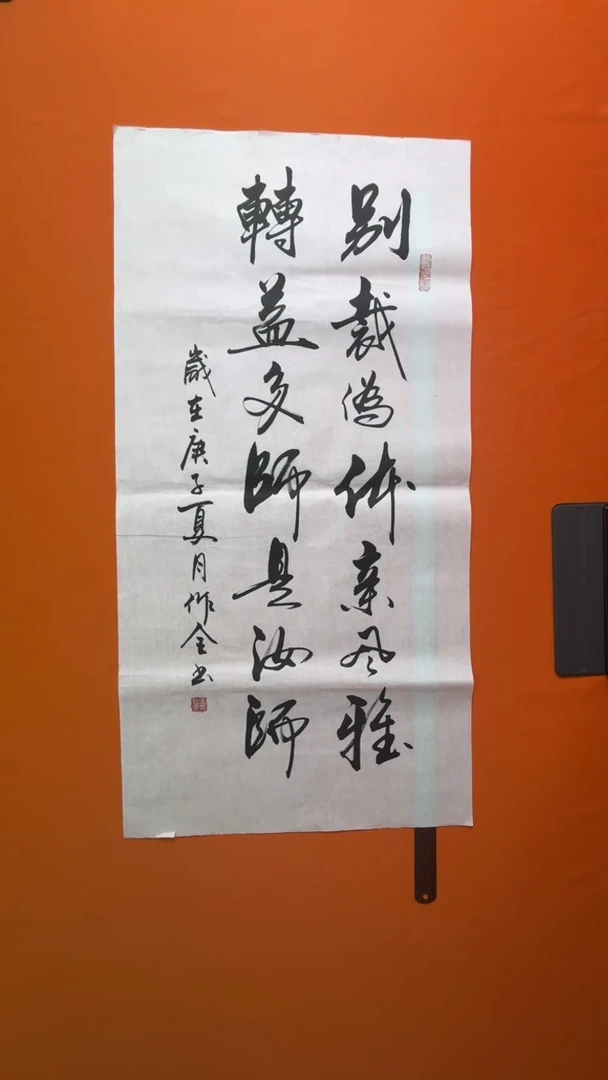 别裁偽体亲风雅
轉益多師是汝師
歲在庚子夏月作全书